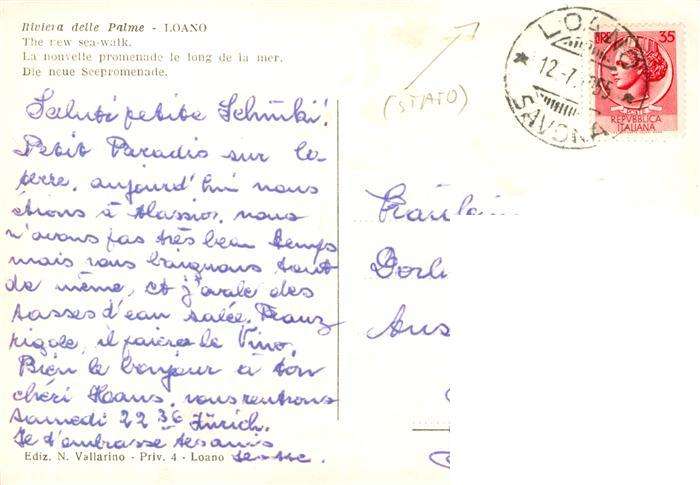 Riviera delle Palme - LOANO
The new sea-walk.
La nouvelle promenade le long de la mer.
Die neue Seepromenade.
(STATO)
LOANO
12-7
SAVONA
LIRE 35
REPVBBLICA
ITALIANA
Saluti petite Schnuki!
Petit Paradis sur la
terre, aujourd'hui nous
étions à Alassio, nous
n'avons pas très beau temps
mais nous baignons tout
de même, et j'avale des
tasses d'eau salée. Franz
rigole, il paiera le Vino.
Bien le bonjour à ton
chéri Haans, nous rentrons
Samedi 22 36 Zürich.
Je t'embrasse tes amis
Fräulein
Ediz. N. Vallarino - Priv. 4 - Loano